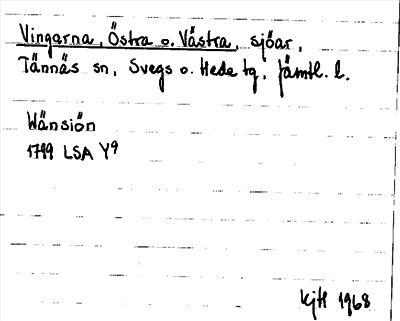 Vingarna, Östra o. Västra, sjöar,
Tännäs sn, Svegs o. Hede tg, Jämtl. l.
Wänsiön
1799 LSA Y9
KjH 1968